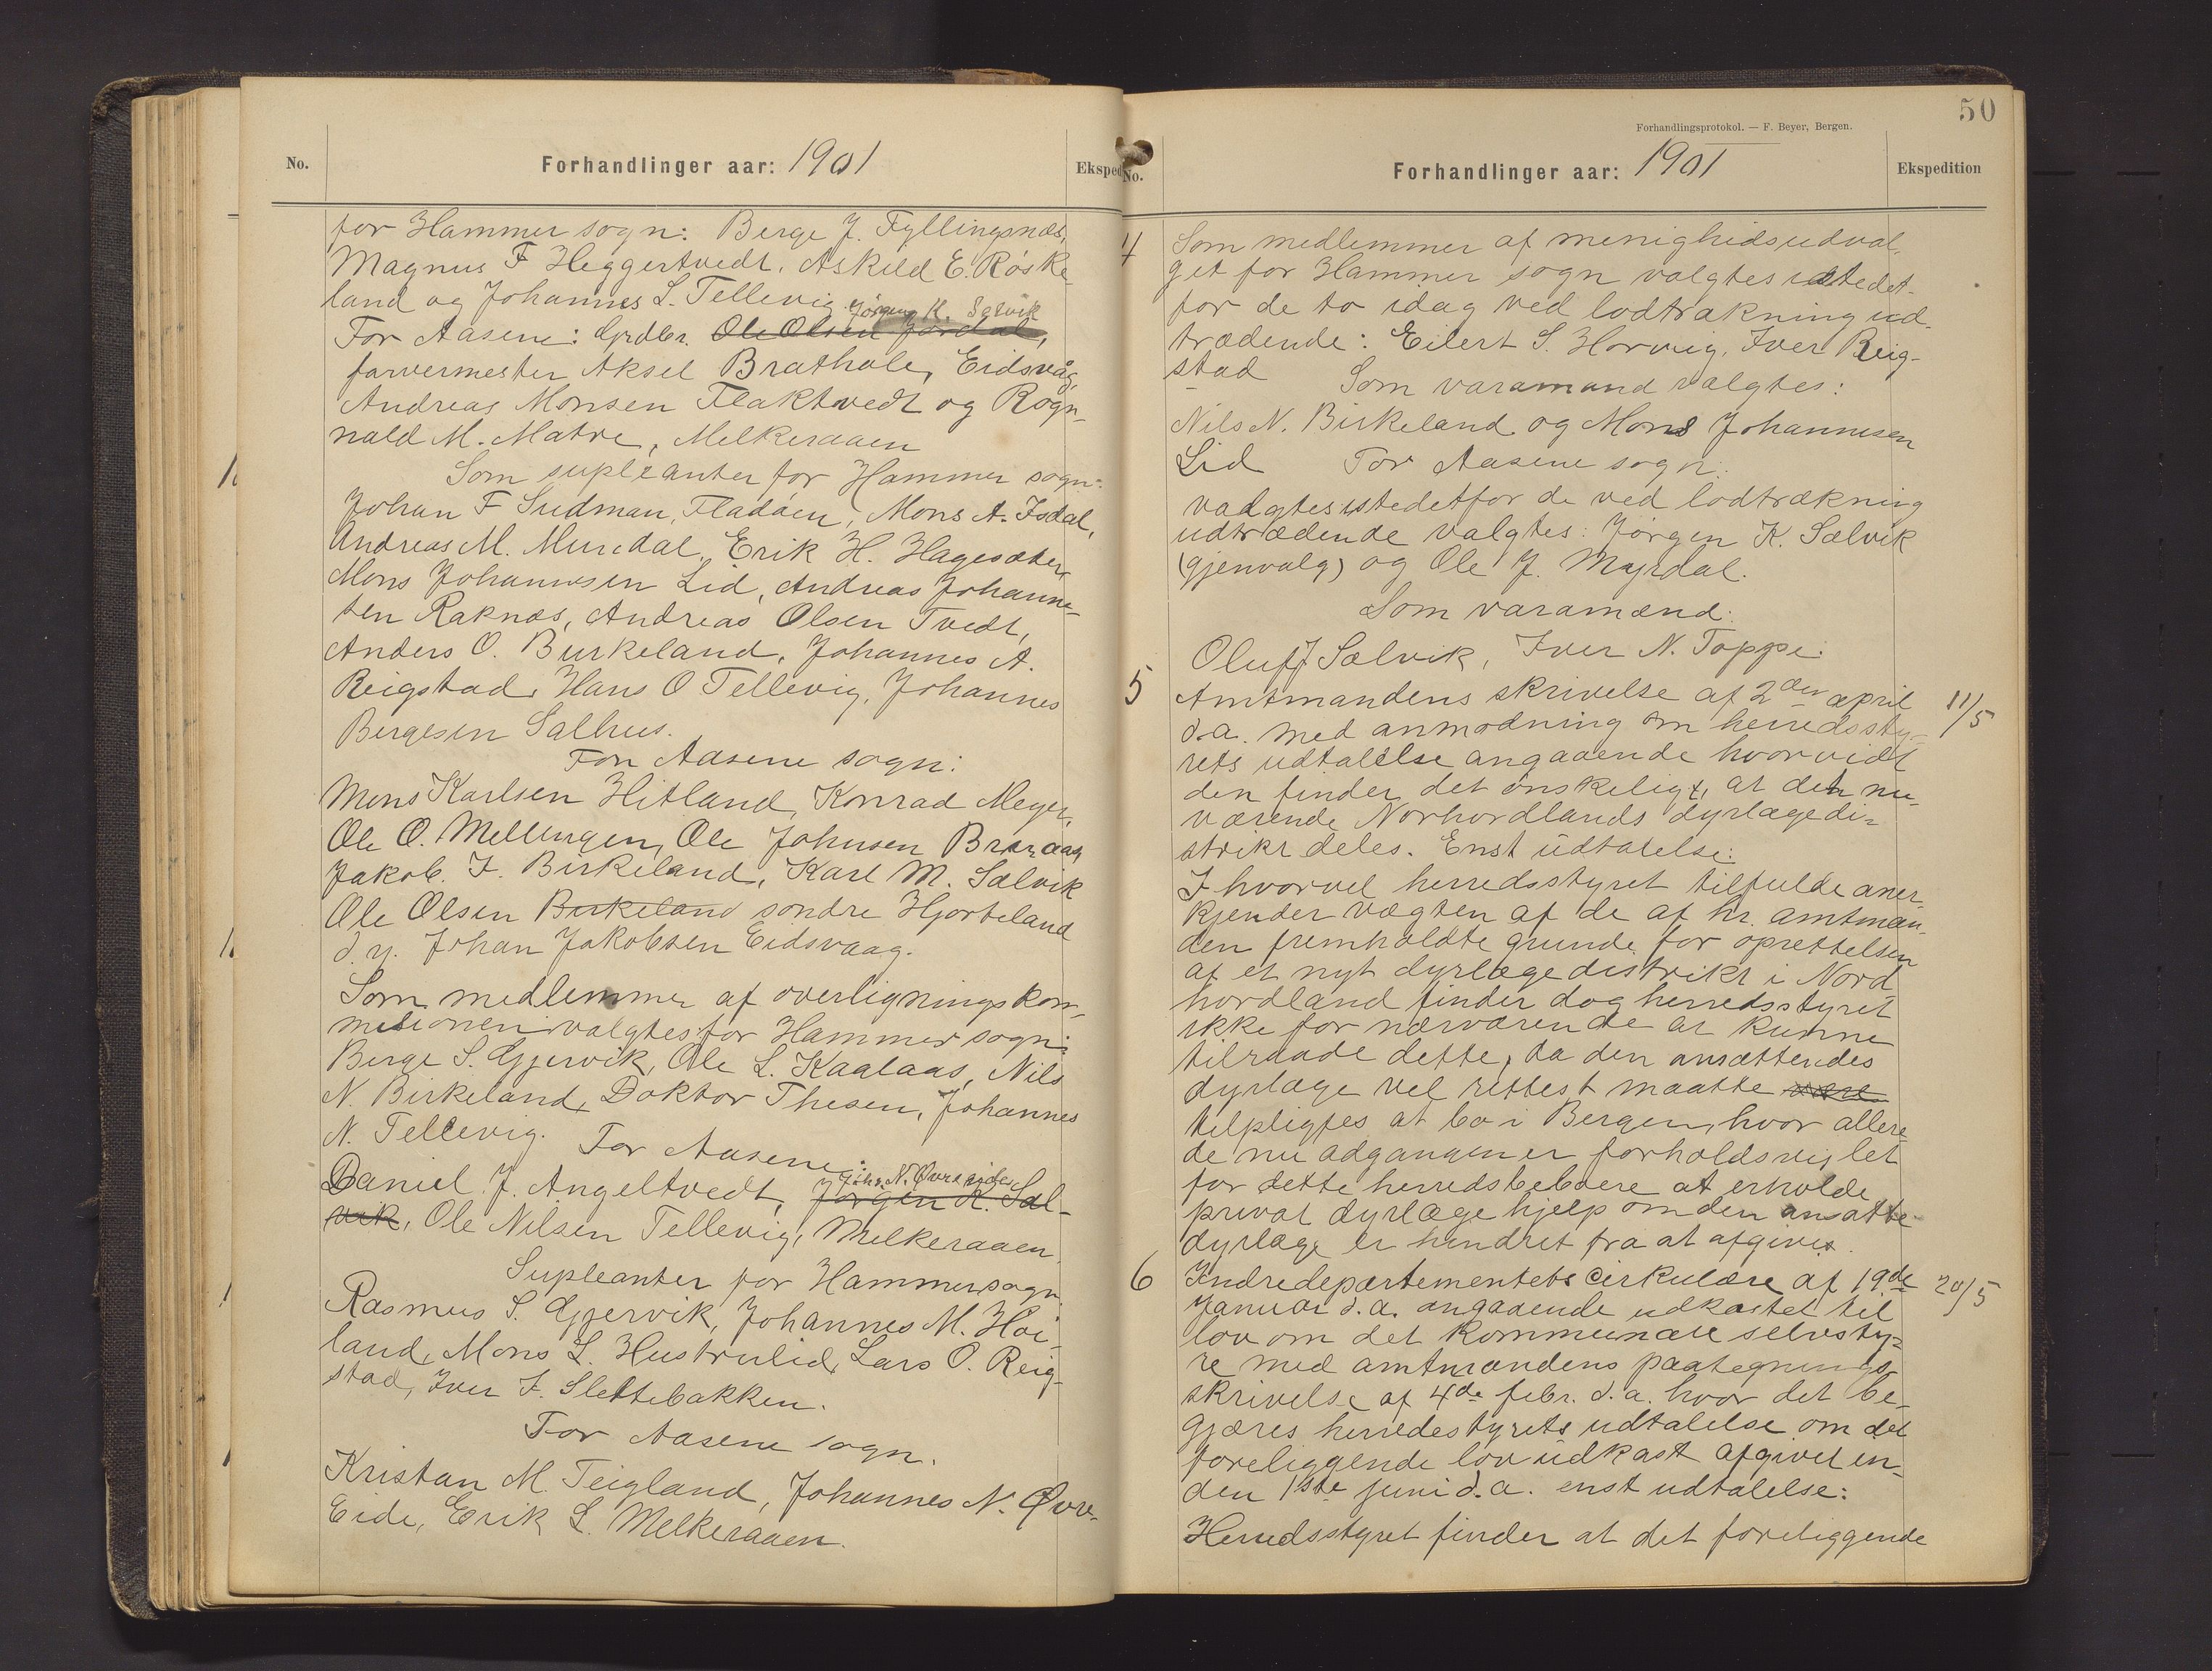 No.
Forhandlinger aar: 1901
Eksped
for Hammer sogn: Berge J. Fyllingsnæs,
Magnus F Heggertvedt, Askild E. Røske
land og Johannes L. Tellevig
Jørgen K. Sælvik
For Aasene: Grdbr. Ole Olsen Jordal,
farvermester Aksel Brathole, Eidsvåg,
Andreas Monsen Flaktvedt og Rogn-
nald M. Matre, Melkeraaen
Som supleanter for Hammer sogn:
Johan F Sudman, Fladöen, Mons A. Isdal,
Andreas M. Muredal, Erik H. Hagesæter,
Mons Johannesen Lid, Andreas Johanne-
sen Raknæs, Andreas Olsen Tvedt,
Anders O. Burkeland, Johannes A.
Reigstad, Hans O Tellevig, Johannes
Bergesen Salhus.
For Aasene sogn:
Mons Karlsen Hitland, Konrad Meyer,
Ole O. Mellingen, Ole Johnsen
Jakob. I. Birkeland, Karl M. Sælvik
Ole Olsen Birkeland söndre Hjorteland
d. y. Johan Jakobsen Eidsvaag.
Som medlemmer af overligningskom-
misionen valgtes for Hammer sogn:
Berge S. Gjervik, Ole L. Kaalaas, Nils
N. Birkeland, Doktor Thesen, Johannes
N. Tellevig. For Aasene:
Johs. N. Øvreeide
Daniel J. Angeltvedt, Jørgen K. Sæl-
vik, Ole Nilsen Tellevig, Melkeraaen
Supleanter for Hammer sogn:
Rasmus S. Gjervik, Johannes M. Höi-
land, Mons L. Hustrulid, Lars O. Reig-
stad, Iver J. Slettebakken.
For Aasene sogn.
Kristan M. Teigland, Johannes N. Øvre-
Eide, Erik L. Melkeraaen.
50
Forhandlingsprotokol. — F. Beyer, Bergen.
No.
Forhandlinger aar: 1901
Ekspedition
4
Som medlemmer af menighedsudval-
get for Hammer sogn valgtes istedet-
for de to idag ved lodtrækning ud-
trædende: Eilert S. Horvig, Iver Reig-
stad Som varamænd valgtes:
Nils N. Birkeland og Mons Johannesen
Lid For Aasene sogn:
valgtes istedetfor de ved lodtrækning
udtrædende valgtes: Jørgen K. Sælvik
(gjenvalg) og Ole J. Myrdal.
Som varamænd:
Oluf J Sælvik, Iver N. Toppe.
5
Amtmandens skrivelse af 2den april
11/5
d.a. med anmodning om herredssty-
rets udtalelse angaaende hvorvidt
den finder det önskeligt, at den nu-
værende Norhordlands dyrlægedi-
strikt deles. Enst udtalelse:
I hvorvel herredsstyret tilfulde aner-
kjender vægten af de af hr. amtman-
den fremholdte grunde for oprettelsen
af et nyt dyrlægedistrikt i Nord
hordland finder dog herredsstyret
ikke for nærværende at kunne
tilraade dette, da den ansættendes
dyrlæge vel rettest maatte være
tilpligtes at bo i Bergen, hvor allere-
de nu adgangen er forholdsvis let
for dette herredsbeboere at erholde
privat dyrlægehjelp om den ansatte
dyrlæge er hindret fra at afgives.
6
Indredepartementets cirkulære af 19de
20/5
Januar d.a. angaaende udkastet til
lov om det kommunale selvsty-
re med amtmandens paategnings-
skrivelse af 4de febr. d.a. hvor det be-
gjæres herredestyrets udtalelse om det
foreliggende lovudkast afgivet in-
den 1ste juni d.a. enst udtalelse:
Herredsstyret finder at det foreliggende